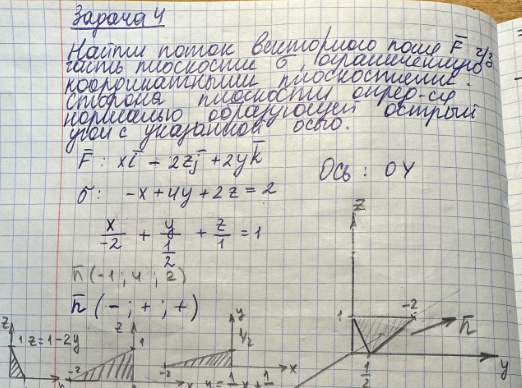 Задача 4
Найти поток векторного поля F̅ ч/з
часть плоскости σ, ограниченную
координатными плоскостями.
Сторона плоскости опред-ся
нормалью образующей острый
угол с указанной осью.
F̅ : xi̅ - 2zj̅ + 2yk̅
Ось : OY
σ: -x + 4y + 2z = 2
x/-2 + y/(1/2) + z/1 = 1
n̅ (-1 ; 4 ; 2)
n̅ (- ; + ; +)
z
1
-2
n̅
1/2
y
z
1
z = 1 - 2y
z
1
-2
x
y
1/2
-2
x